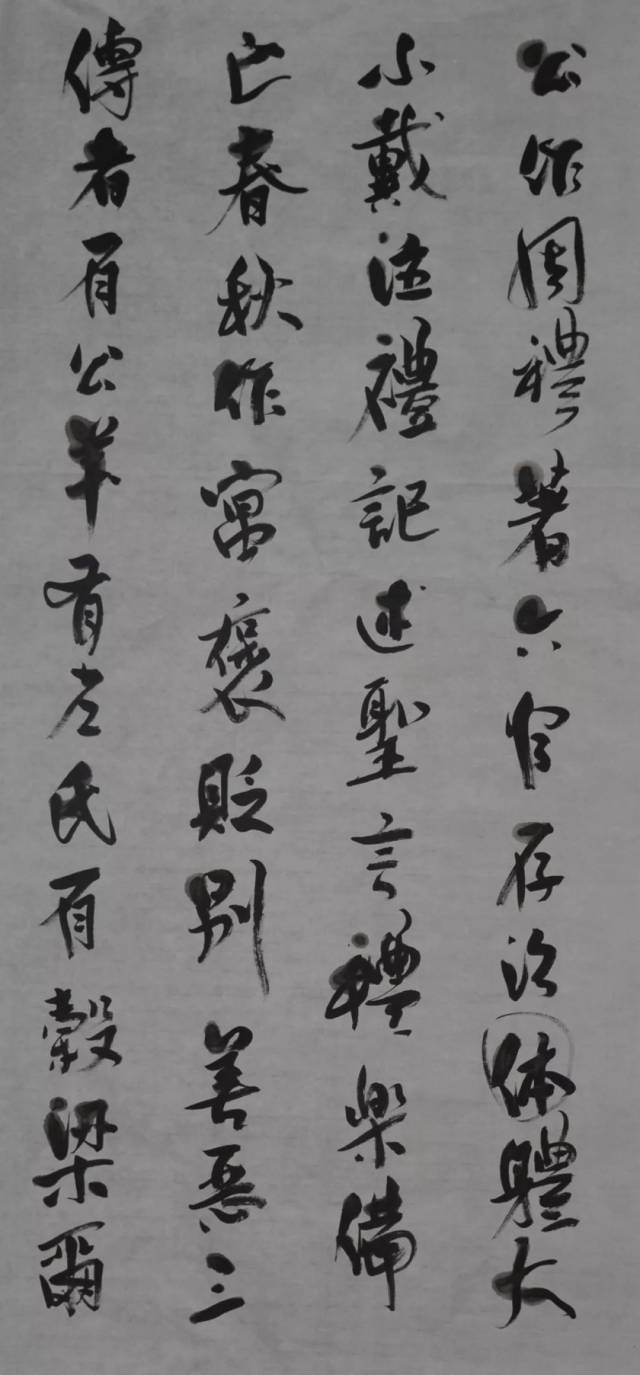 公作周禮著六官存治体體大
小戴注禮記述聖言禮樂備
亡春秋作寓褒貶别善惡三
傳者有公羊有左氏有穀梁爾